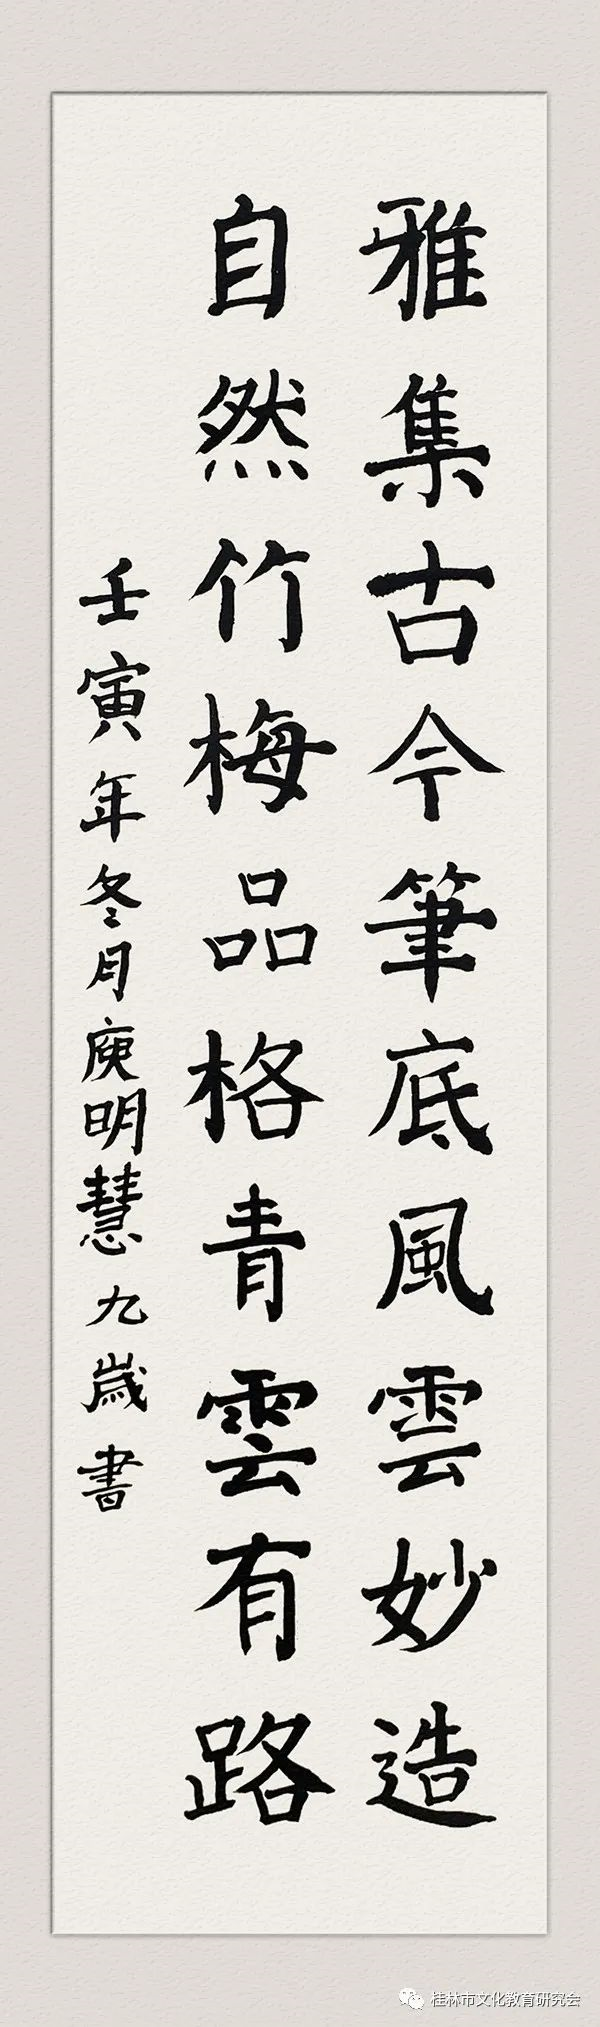 雅集古今筆底風雲妙造
自然竹梅品格青雲有路
壬寅年冬月庾明慧九歲書
桂林市文化教育研究会